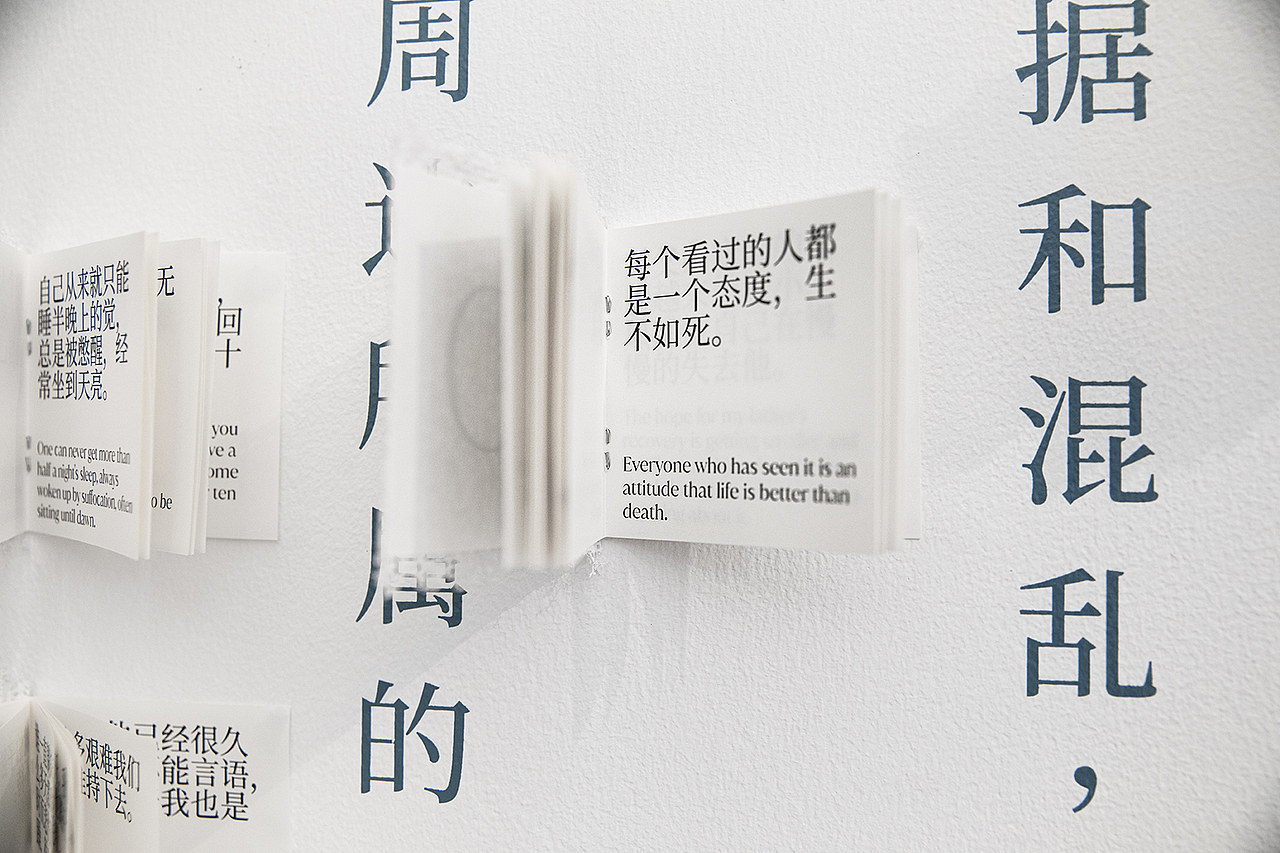 周
所
属
的
据
和
混
乱
，
自己从来就只能
睡半晚上的觉，
总是被憋醒，经
常坐到天亮。
One can never get more than
half a night's sleep, always
woken up by suffocation, often
sitting until dawn.
无
to be
回
十
you
ve a
ome
ten
每个看过的人都
是一个态度，生
不如死。
Everyone who has seen it is an
attitude that life is better than
death.
The hope for my father's
已经很久
能言语，
我也是
多艰难我们
持下去。